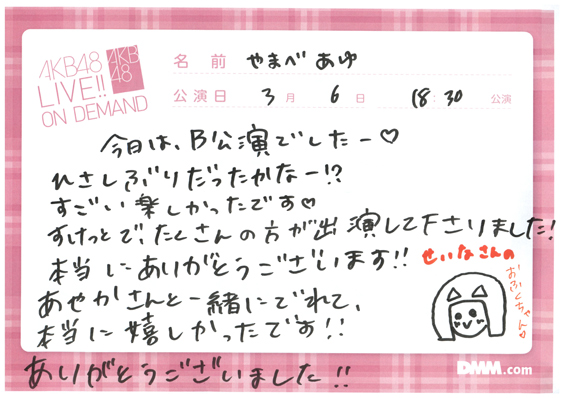 AKB48
LIVE!!
ON DEMAND
AKB
48
名前 やまべ あゆ
公演日 3月 6日 18:30 公演
今日は、B公演でしたー♡
ひさしぶりだったかなー!?
すごい楽しかったです♡
すけっとで、たくさんの方が出演して下さりました!
本当にありがとうございます!!
せいなさんの
おふくちゃん
あやかさんと一緒にでれて、
本当に嬉しかったです!!
ありがとうございました!!
DMM.com